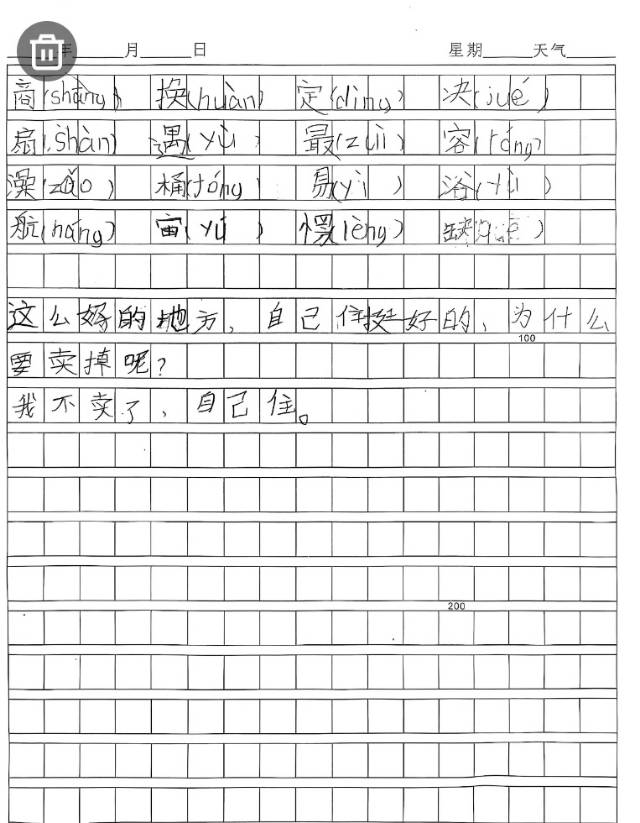 年 月 日 星期 天气
商(shāng) 换(huàn) 定(dìng) 决(jué)
扇(shàn) 遇(yù) 最(zuì) 容(róng)
澡(zǎo) 桶(tǒng) 易(yì) 浴(yù)
航(háng) 宙(yù) 愣(lèng) 缺(quē)
这么好的地方,自己住挺好的、为什么
100
要卖掉呢?
我不卖了、自己住。
200